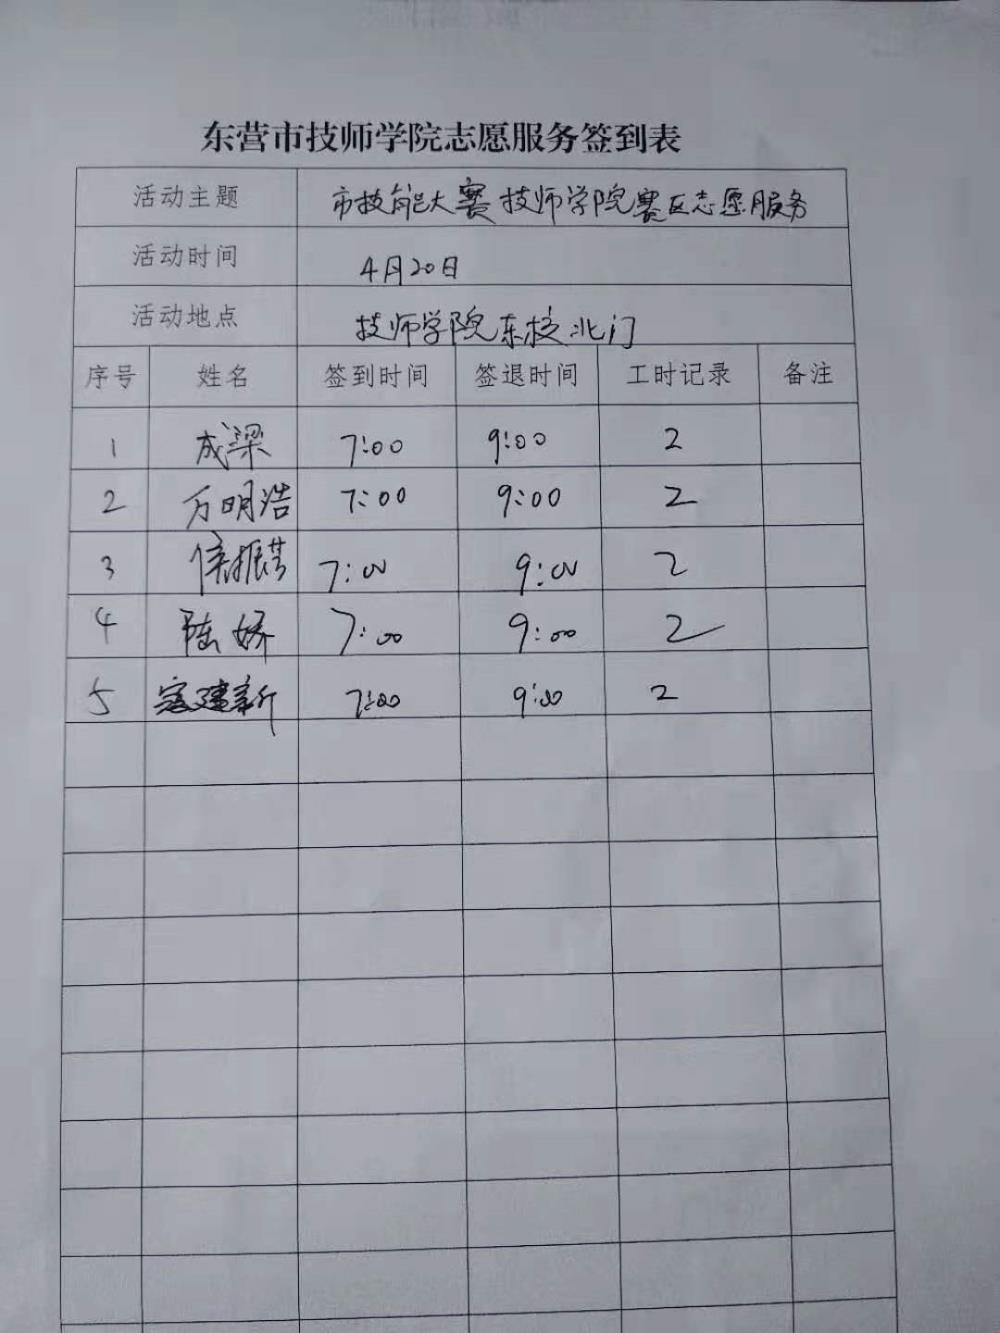 东营市技师学院志愿服务签到表
活动主题 市技能大赛技师学院赛区志愿服务
活动时间 4月20日
活动地点 技师学院东校北门
序号 姓名 签到时间 签退时间 工时记录 备注
1 成梁 7:00 9:00 2
2 万明浩 7:00 9:00 2
3 7:00 9:00 2
4 陆娇 7:00 9:00 2
5 建新 7:00 9:00 2